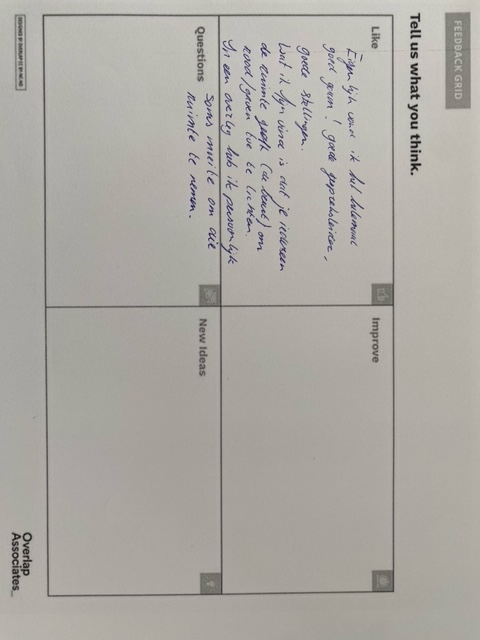 FEEDBACK GRID
Tell us what you think.
Like
Eigenlijk vond ik het helemaal
goed gaan! goede gespreksleider,
goede stellingen.
Wat ik fijn vond is dat je iedereen
de ruimte geeft (de beurt) om
rood/groen toe te lichten.
In een overleg heb ik persoonlijk
soms moeite om die
ruimte te nemen.
Improve
Questions
New Ideas
DESIGNED BY OVERLAP
Overlap
Associates_